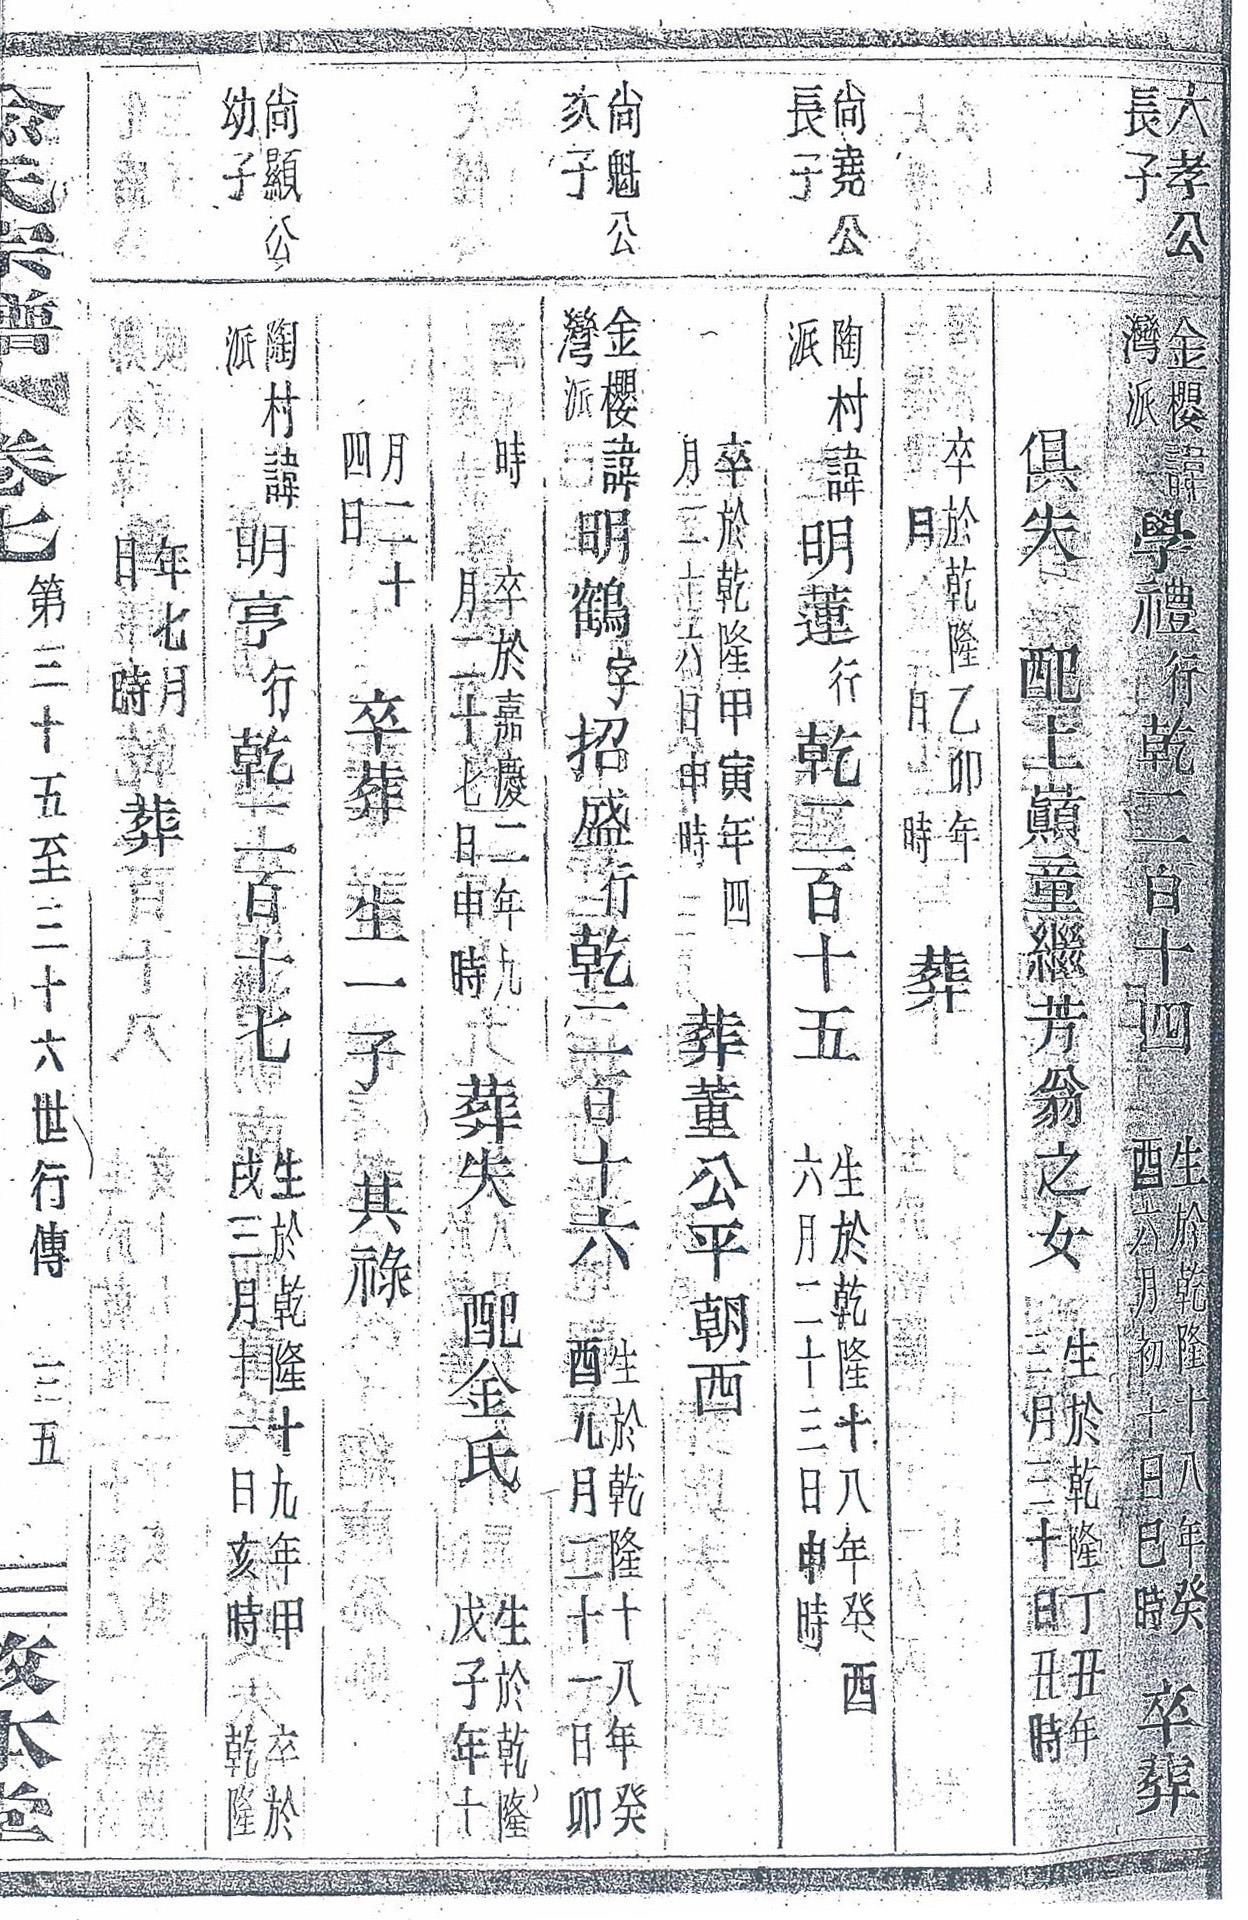 六孝公長子
金櫻灣派諱學禮行乾二百十四 生於乾隆十八年癸酉六月初十日巳時 卒葬
俱失 配上巔童繼芳翁之女 生於乾隆丁丑年三月三十日丑時
卒於乾隆乙卯年 月 日 時 葬
尚堯公長子
陶村派諱明蓮行乾二百十五 生於乾隆十八年癸酉六月二十三日申時
卒於乾隆甲寅年四月二十六日申時 葬董公平朝西
尚魁公亥子
金櫻灣派諱明鶴字招盛行乾二百十六 生於乾隆十八年癸酉元月二十一日卯
時 卒於嘉慶二年九月二十七日申時 葬失 配金氏 生於乾隆戊子年十
月二十四日 卒葬 生一子 其祿
尚顯公幼子
陶村派諱明亨行乾二百十七 生於乾隆十九年甲戌三月十一日亥時 卒於乾隆
年七月 日 時 葬
氏宗譜 卷七 第三十五至三十六世行傳 三五 本堂